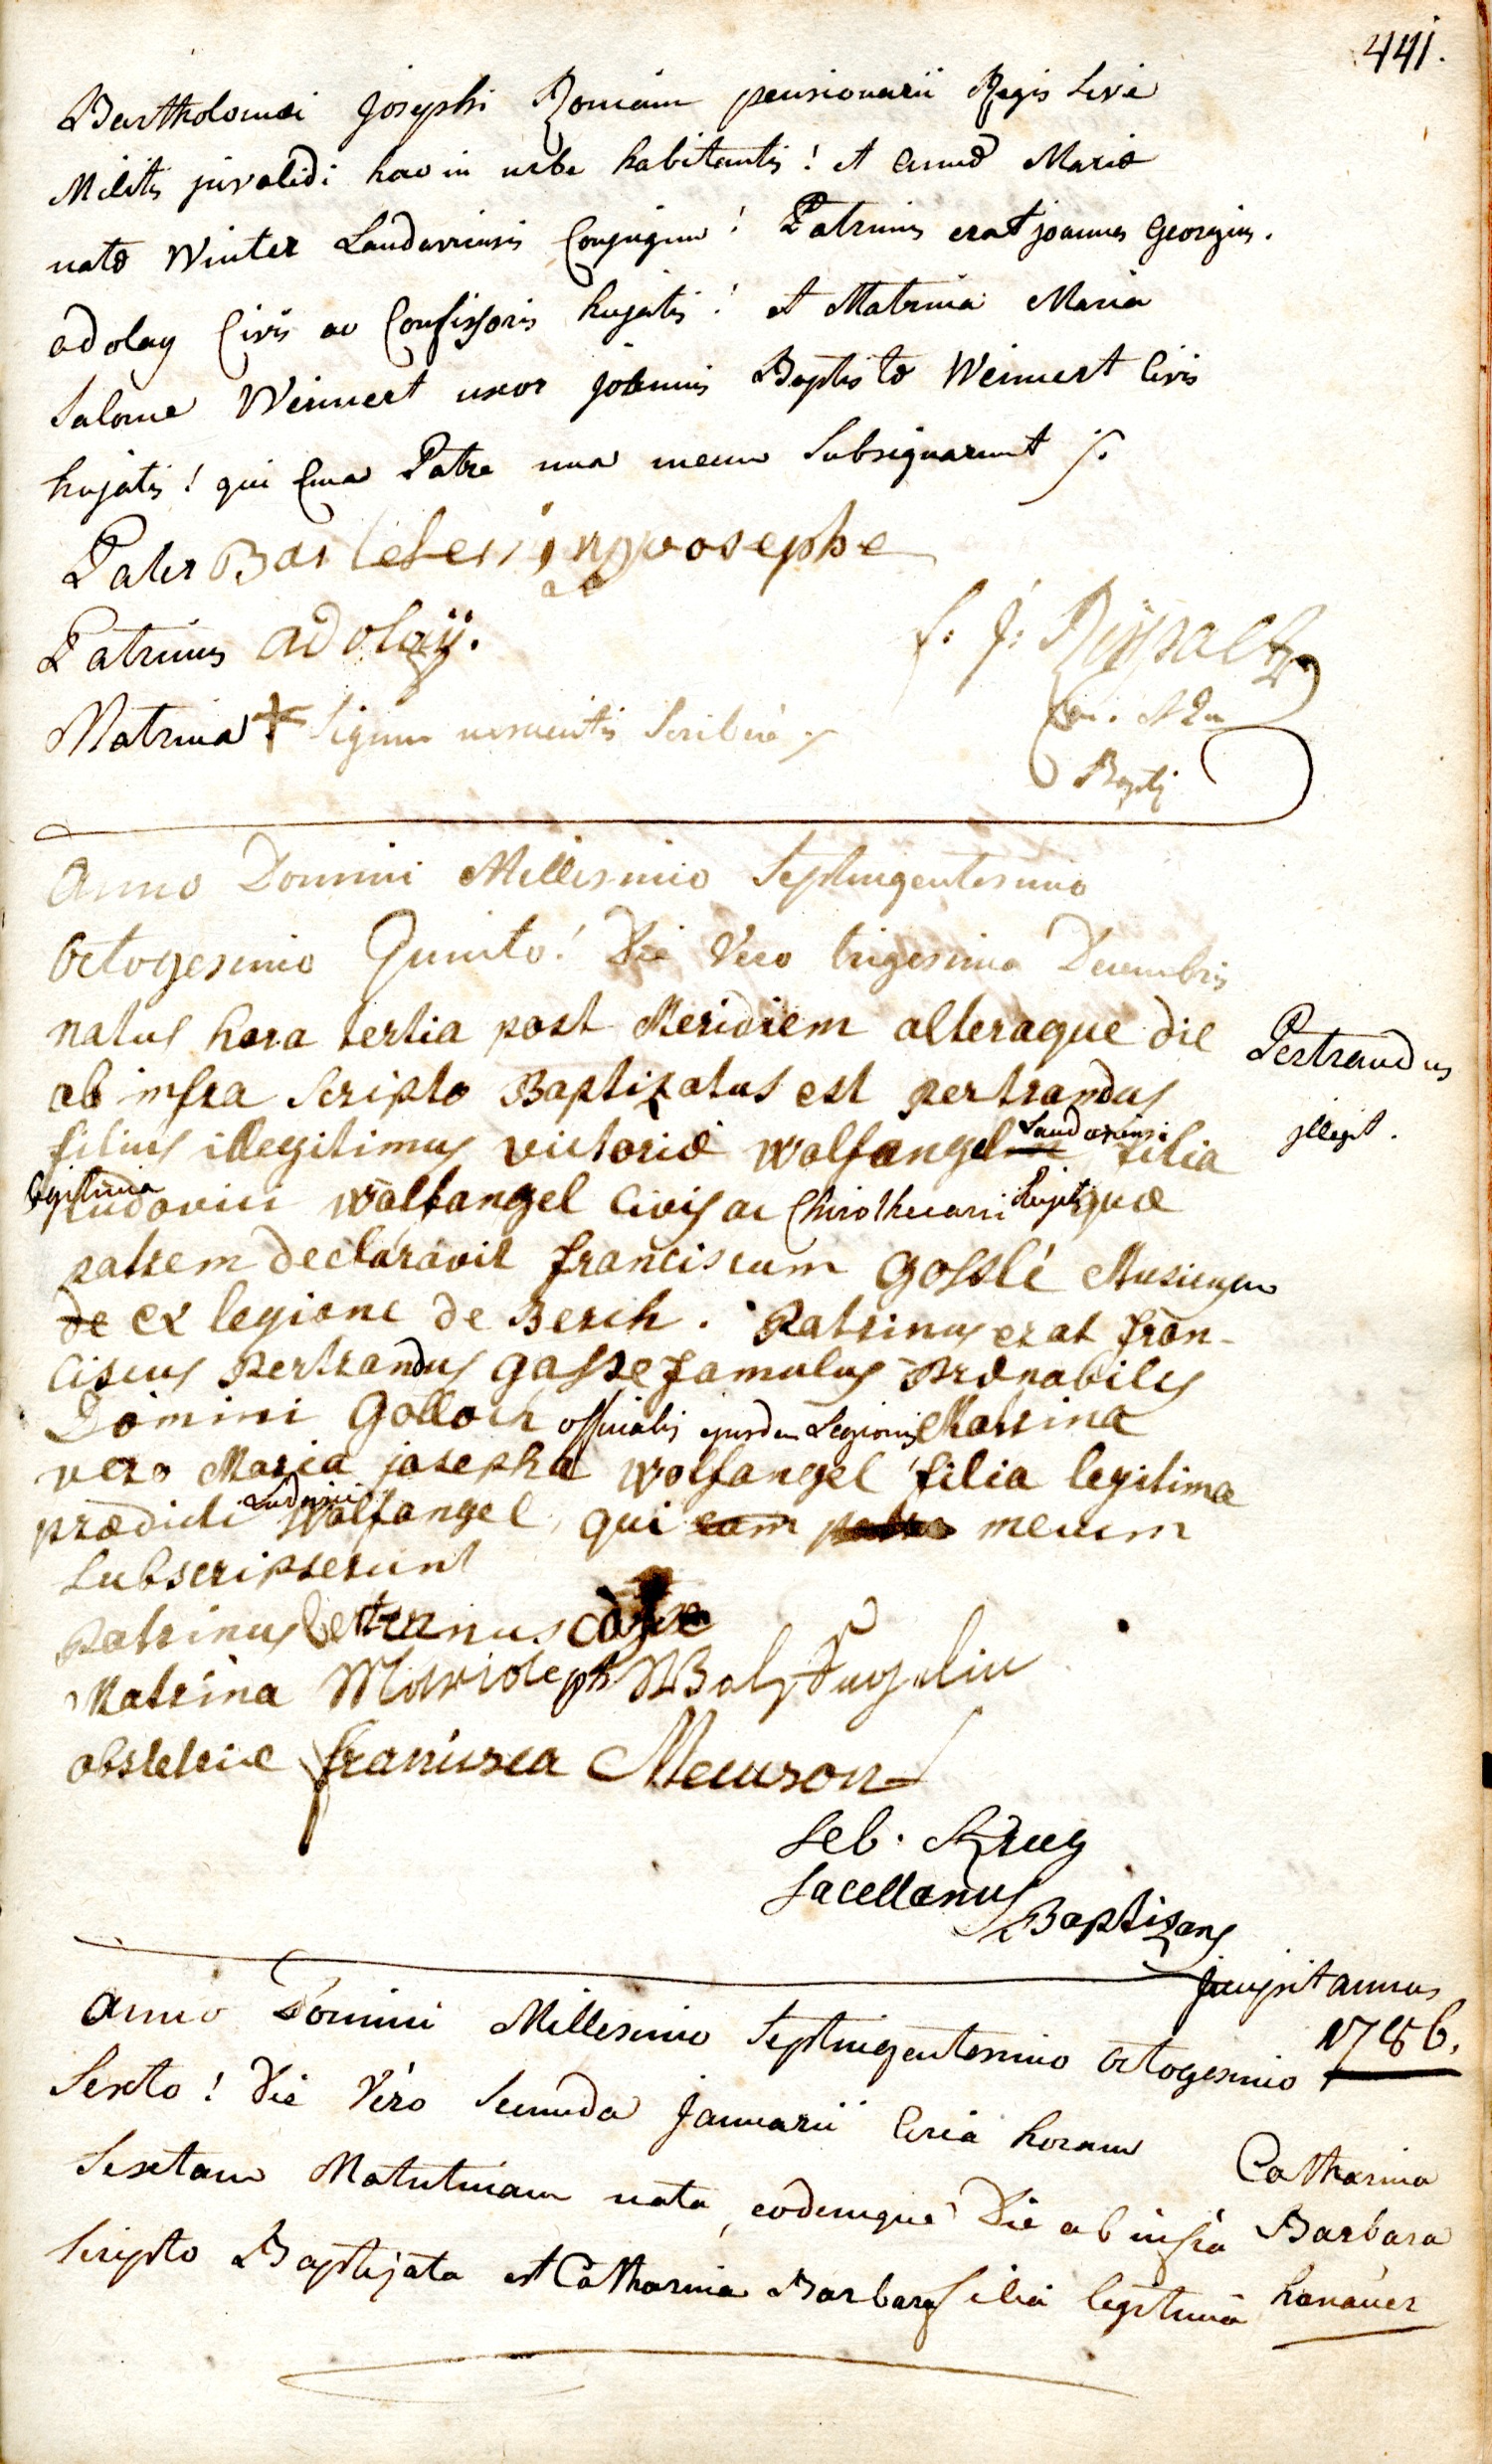 441.
Bartholomæi Josephi Romain pensionarii Regis sive
Militis invalidi hac in urbe habitantis! et annæ Mariæ
natæ Winter Landaviensis Conjugum! Patrinus erat joannes Georgius
adolay Civis ac Confissoris hujatis! et Matrina Maria
Salome Weinnert uxor joannis Baptistæ Weinnert Civis
hujatis! qui Cum Patre una mecum Subsignarunt
Pater
Patrinus adolaÿ.
Matrina + Signum nescientis Scribere
Baptis
Anno Domini Millesimo Septingentesimo
Octogesimo Quinto! Die Vero trigesima Decembris
natus hora tertia post Meridiem alteraque die
ab infra Scripto Baptizatus est pertrandus
Pertrandus
illegit.
filius illegitimus victoriæ Wolfangel Landaviensis filia
legitima Ludovici Wolfangel Civis ac Chirothecarii hujatis quæ
patrem declaravit franciscum Gosslé Musicum
de ex legione de Berch. Patrinus erat fran-
ciscus Pertrandus gasse famulus Prænobilis
Domini Golloch officialis ejusdem Legionis Matrina
vero Maria josepha Wolfangel filia legitima
prædicti Ludovici Wolfangel, qui cum patre mecum
Subscripserunt
Patrinus
Matrina
obstetrice francisca Meurson
Seb. Krug
Sacellanus
Baptizans
Incipit annus
1786.
Anno Domini Millesimo Septingentesimo Octogesimo
Sexto! Die Vero Secunda Januarii Circa horam
Sextam Matutinam nata, eodemque Die ab infra
Scripto Baptizata est Catharina Barbara filia legitima
Catharina
Barbara
hanauer